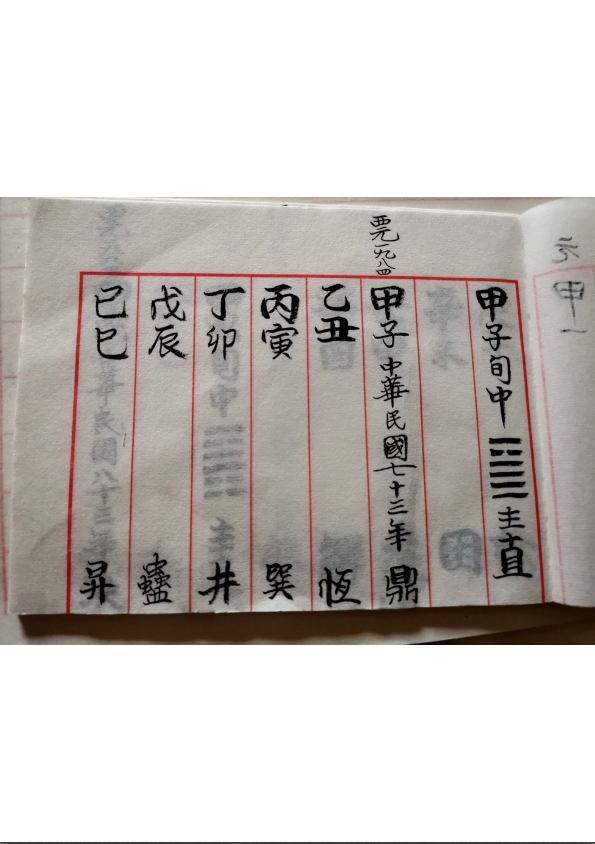 甲子旬中主直
西元一九八四
甲子中華民國七十三年 鼎
乙丑 恆
丙寅 巽
丁卯 井
戊辰 蠱
己巳 昇